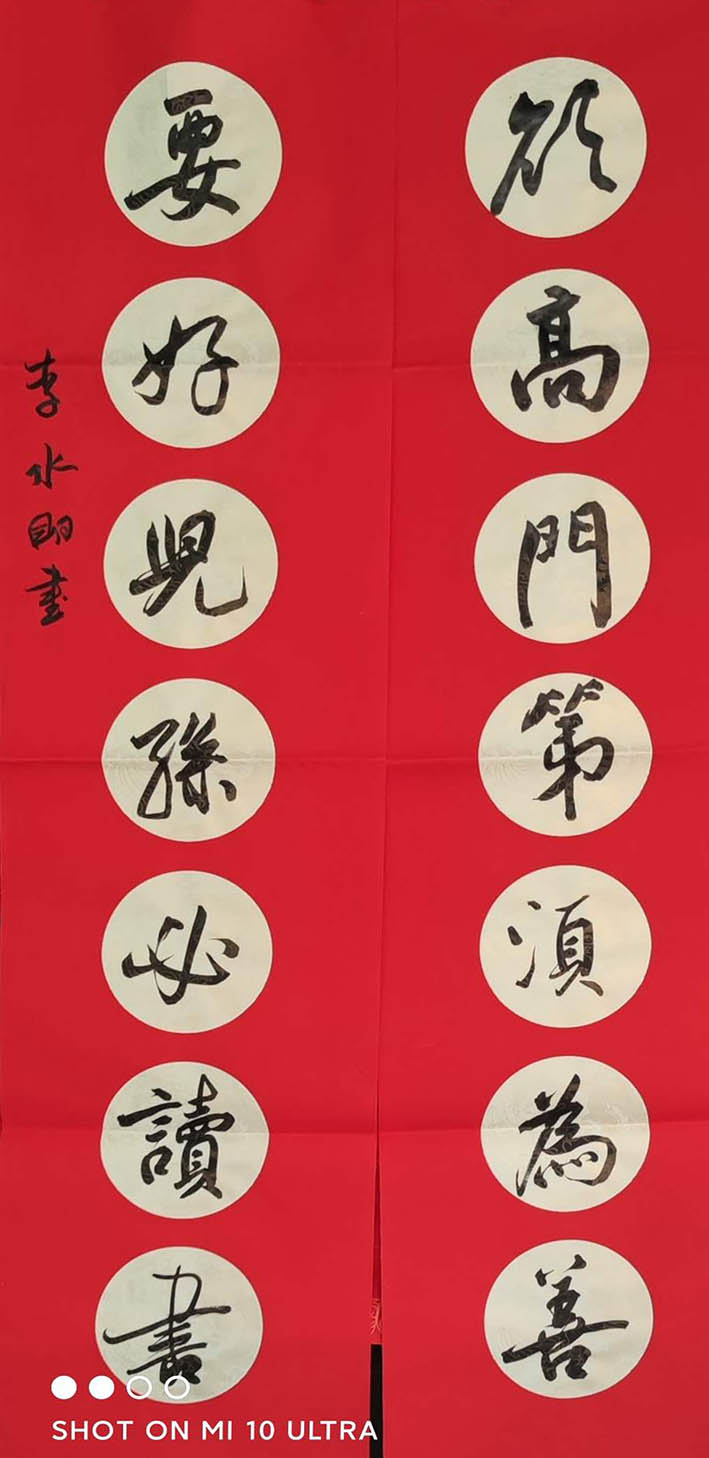 欲高門第須為善
要好兒孫必讀書
李水明書
SHOT ON MI 10 ULTRA